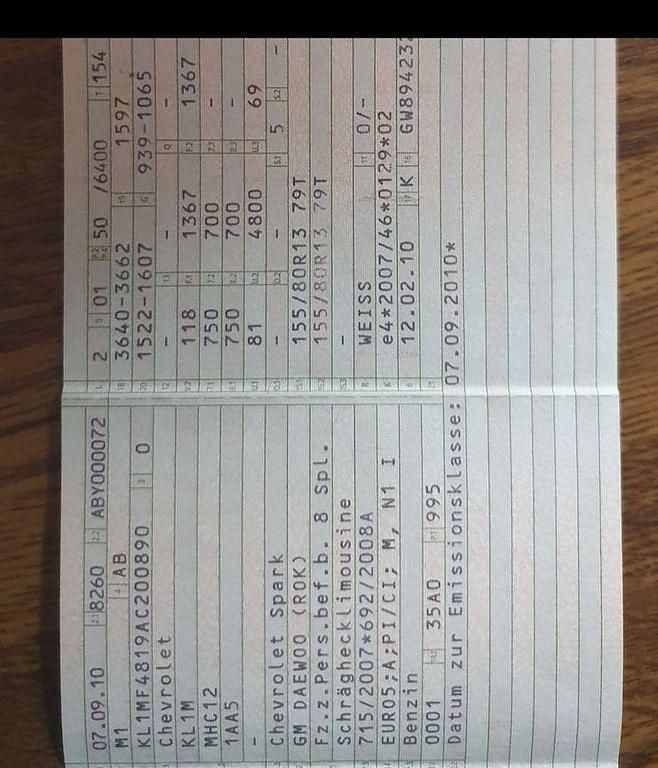 07.09.10 2.1 8260 2.2 ABY000072
M1 4 AB
KL1MF4819AC200890 3 0
Chevrolet
KL1M
MHC12
1AA5
-
Chevrolet Spark
GM DAEWOO (ROK)
Fz.z.Pers.bef.b. 8 Spl.
Schräghecklimousine
715/2007*692/2008A
EURO5;A;PI/CI; M, N1 I
Benzin
0001 14.1 35A0 P.1 995
22 Datum zur Emissionsklasse: 07.09.2010*
L 2 9 01 P.2 P.4 50 /6400 T 154
18 3640-3662 19 1597
20 1522-1607 G 939-1065
12 - 13 - Q -
V.7 118 F.1 1367 F.2 1367
7.1 750 7.2 700 7.3 -
8.1 750 8.2 700 8.3 -
U.1 81 U.2 4800 U.3 69
O.1 - O.2 - S.1 5 S.2 -
15.1 155/80R13 79T
15.2 155/80R13 79T
15.3 -
R WEISS 11 0/-
K e4*2007/46*0129*02
6 12.02.10 17 K 16 GW89423
21